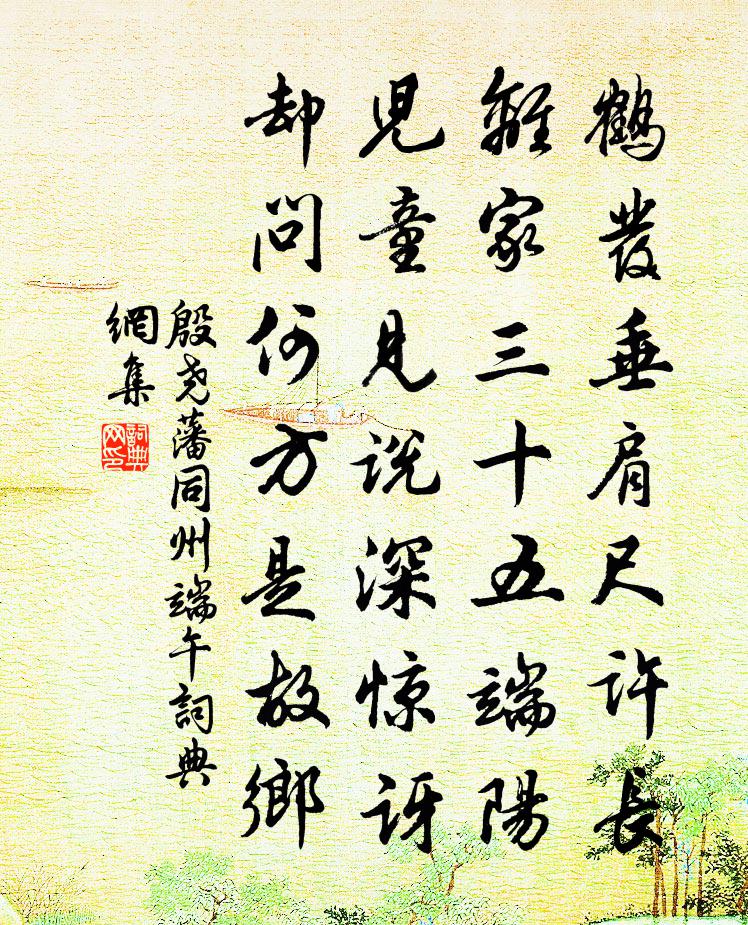 鶴發垂肩尺許長
離家三十五端陽
兒童見说深惊讶
却問何方是故鄉
殷尧藩同州端午詞典
網集
詞典
网印